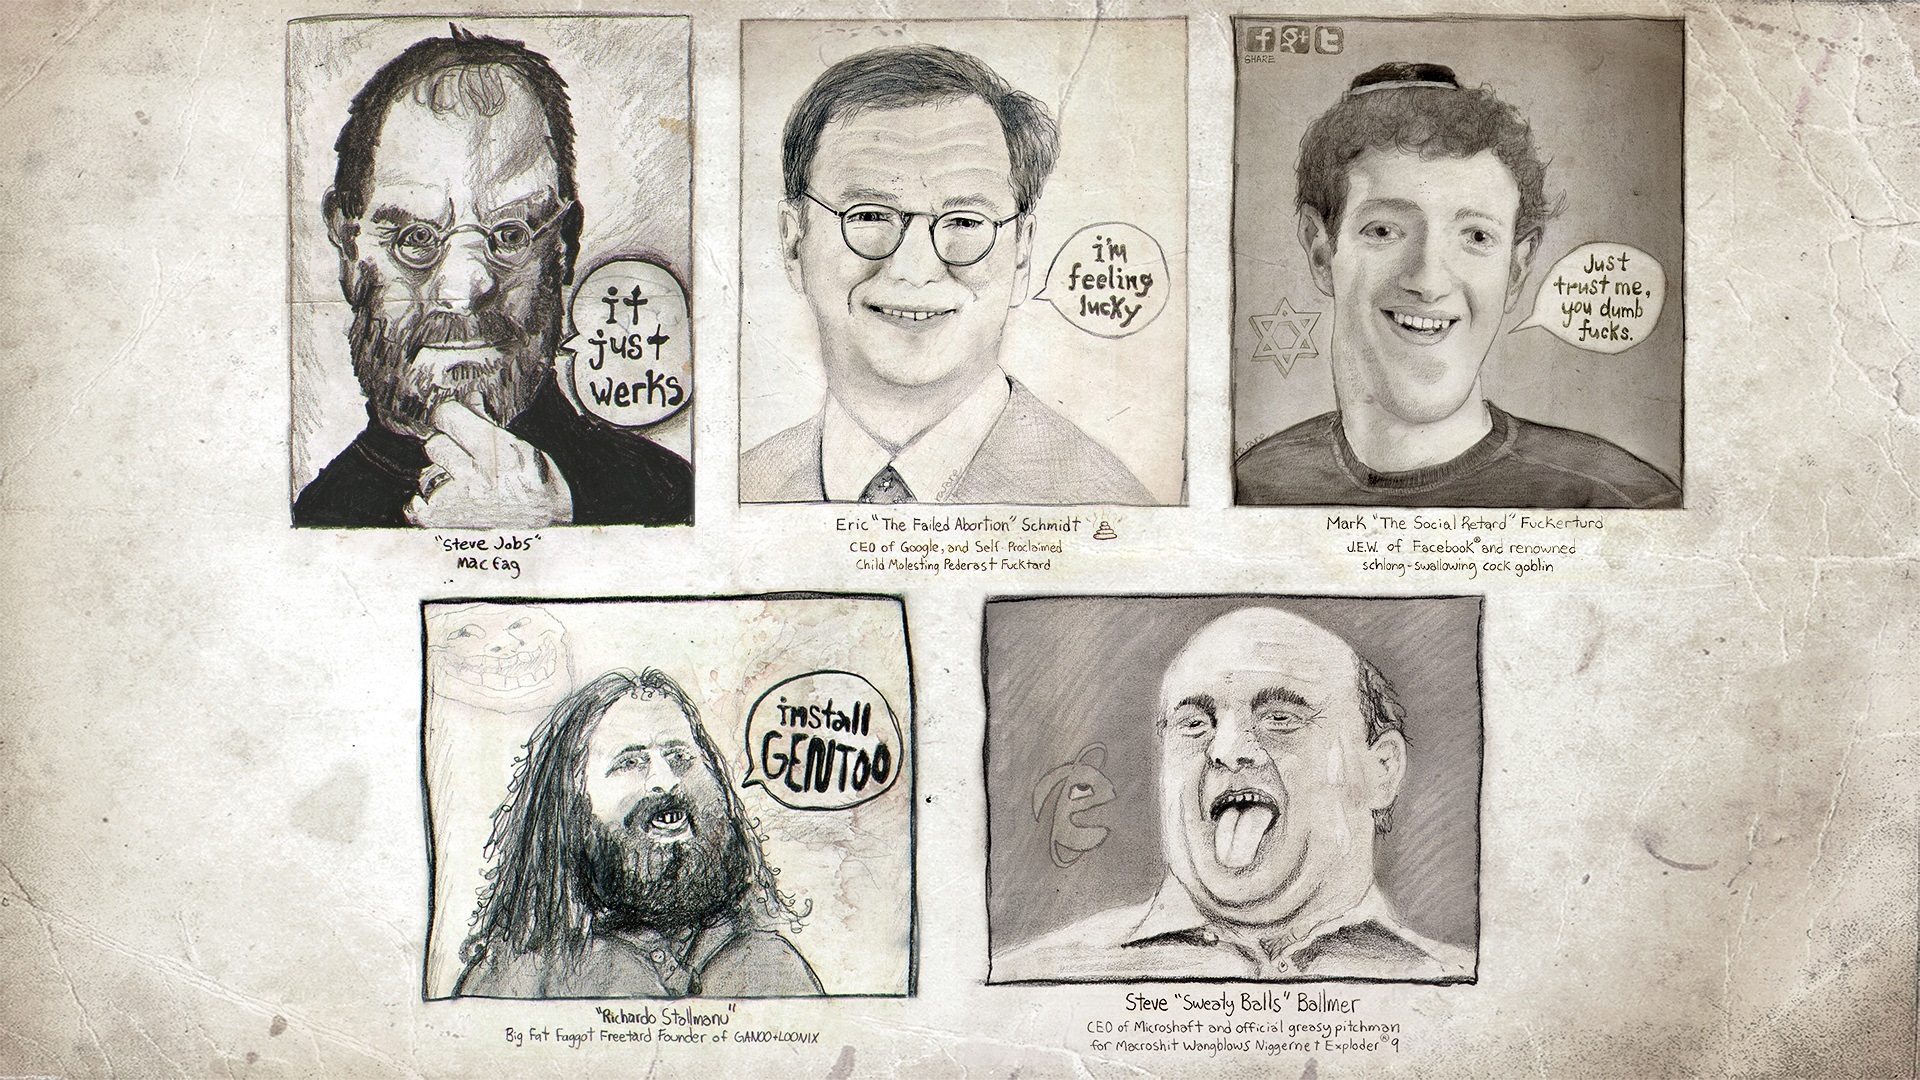 it
just
werks
"Steve Jobs"
Mac Fag
i'm
feeling
lucky
Eric "The Failed Abortion" Schmidt
CEO of Google, and Self-Proclaimed
Child Molesting Pederast Fucktard
f g+ t
SHARE
Just
trust me,
you dumb
fucks.
Mark "The Social Retard" Fuckerturd
J.E.W. of Facebook® and renowned
schlong-swallowing cock goblin
install
GENTOO
"Richardo Stallmanu"
Big Fat Faggot Freetard Founder of GANOO+LOONIX
e
Steve "Sweaty Balls" Ballmer
CEO of Microshaft and official greasy pitchman
for Macroshit Wangblows Niggernet Exploder® 9